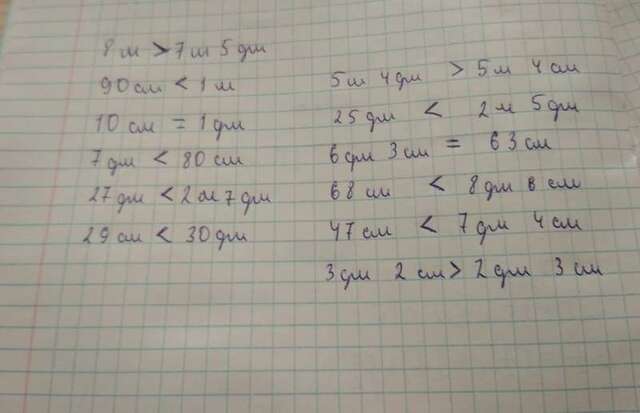 8 м > 7 м 5 дм
90 см < 1 м
10 см = 1 дм
7 дм < 80 см
27 дм < 2 м 7 дм
29 см < 30 дм
5 м 4 дм > 5 м 4 см
25 дм < 2 м 5 дм
6 дм 3 см = 63 см
68 см < 8 дм 6 см
47 см < 7 дм 4 см
3 дм 2 см > 2 дм 3 см